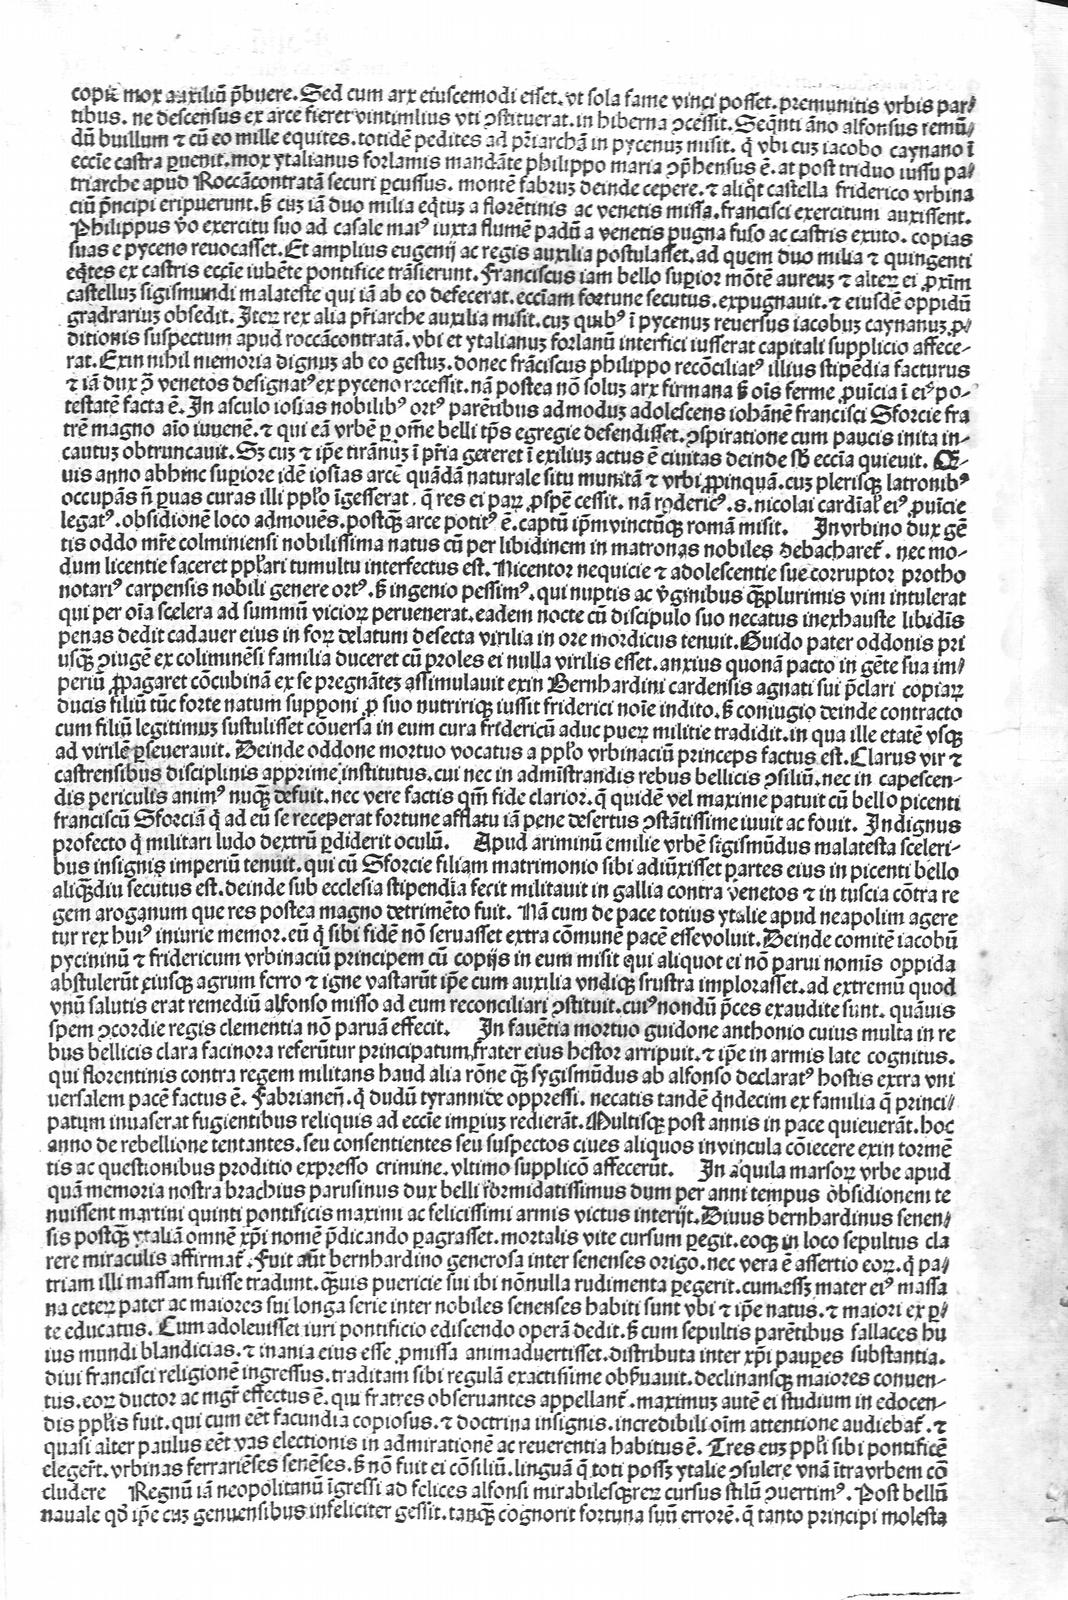 copie mox auxiliū p̄buere. Sed cum arx eiuscemodi esset. vt sola fame vinci posset. premunitis vrbis par⸗
tibus. ne descensus ex arce fieret vintimlius vti ꝯstituerat. in hiberna ꝯcessit. Seq̄nti āno alfonsus remū⸗
dū buillum ⁊ cū eo mille equites. totidē pedites ad pr̄iarchā in pycenuꝫ misit. q̄ vbi cuꝫ iacobo caynano ī
ecclie castra ꝑuenit. mox ytalianus forlamis mandāte philippo maria ꝯp̄hensus ē. at post triduo iussu pa⸗
triarche apud Roccācontratā securi ꝑcussus. montē fabruꝫ deinde cepere. ⁊ aliq̄t castella friderico vrbina
ciū p̄ncipi eripuerunt. ß cuꝫ iā duo milia eq̄tuꝫ a florētinis ac venetis missa. francisci exercitum auxissent.
Philippus v̄o exercitu suo ad casale maiꝰ iuxta flumē padū a venetis pugna fuso ac castris exuto. copias
suas e pyceno reuocasset. Et amplius eugenij ac regis auxilia postulasset. ad quem duo milia ⁊ quingenti
eq̄tes ex castris ecclīe iubēte pontifice trāsierunt. Franciscus iam bello suꝑior mōtē aureuꝫ ⁊ alteꝝ ei ꝓxīm
castelluꝫ sigismundi malateste qui iā ab eo defecerat. eccīam fortune secutus. expugnauit. ⁊ eiusdē oppidū
gradrarius obsedit. Iteꝝ rex alia pr̄iarche auxilia misit. cuꝫ quibꝰ ī pycenuꝫ reuersus iacobus caynanuꝫ. ꝓ⸗
ditionis suspectum apud roccācontratā. vbi et ytalianuꝫ forlanū interfici iusserat capitali supplicio affece⸗
rat. Exin nihil memoria dignuꝫ ab eo gestuꝫ. donec frāciscus philippo recōciliatꝰ illius stipēdia facturus
⁊ iā dux ꝓ venetos designatꝰ ex pyceno recessit. nā postea nō soluꝫ arx firmana ß oīs ferme ꝓuicia ī eiꝰ po⸗
testatē facta ē. In asculo iosias nobilibꝰ ortꝰ parētibus admoduꝫ adolescens iohānē francisci Sforcie fra
trē magno aīo iuuenē. ⁊ qui eā vrbē ꝑ om̄e belli tp̄s egregie defendisset. ꝯspiratione cum paucis inita in⸗
cautuꝫ obtruncauit. Sꝫ cuꝫ ⁊ ip̄e tirānuꝫ ī pr̄ia gereret ī exiliuꝫ actus ē ciuitas deinde sb̄ eccīa quieuit.
vis anno abhinc suꝑiore idē iosias arcē quādā naturale situ munitā ⁊ vrbi ꝓpinquā. cuꝫ plerisqꝫ latronibꝰ
occupās n̄ ꝑuas curas illi pplo īgesserat. q̄ res ei paꝝ ꝓspē cessit. nā rodericꝰ. s. nicolai cardīal̄ eiꝰ ꝓuicie
legatꝰ. obsidionē loco admouēs. postq̄ꝫ arce potitꝰ ē. captū ip̄m vinctūqꝫ romā misit. In vrbino dux gē
tis oddo mr̄e colminiensi nobilissima natus cū per libidinem in matronas nobiles debacharet̄. nec mo⸗
dum licentie faceret pplari tumultu interfectus est. Nicentor nequicie ⁊ adolescentie sue corruptor protho
notariꝰ carpensis nobili genere ortꝰ. ß ingenio pessimꝰ. qui nuptis ac v̄ginibus q̄ꝫplurimis vim intulerat
qui per oīa scelera ad summū vicioꝝ peruenerat. eadem nocte cū discipulo suo necatus inexhauste libidīs
penas dedit cadauer eius in foꝝ delatum desecta virilia in ore mordicus tenuit. Guido pater oddonis pri
usq̄ꝫ ꝯiugē ex coliminēsi familia duceret cū proles ei nulla virilis esset. anxius quonā pacto in gēte sua im⸗
periū ꝓpagaret cōcubinā ex se pregnāteꝫ assimulauit exin Bernhardini cardensis agnati sui p̄clari copiaꝝ
ducis filiū tūc forte natum supponi ꝓ suo nutririqꝫ iussit friderici noīe indito. ß coniugio deinde contracto
cum filiū legitimuꝫ sustulisset cōuersa in eum cura fridericū aduc pueꝝ militie tradidit. in qua ille etatē vsqꝫ
ad virilē ꝑseuerauit. Deinde oddone mortuo vocatus a pplo vrbinaciū princeps factus est. Clarus vir ⁊
castrensibus disciplinis apprime institutus. cui nec in admīstrandis rebus bellicis ꝯsiliū. nec in capescen⸗
dis periculis animꝰ nuq̄ꝫ defuit. nec vere factis qm̄ fide clarior. q̄ quidē vel maxime patuit cū bello picenti
franciscū Sforciā q̄ ad eū se receperat fortune afflatu iā pene desertus ꝯstātissime iuuit ac fouit. Indignus
profecto q̄ militari ludo dextrū ꝑdiderit oculū. Apud ariminū emilie vrbē sigismūdus malatesta sceleri⸗
bus insignis imperiū tenuit. qui cū Sforcie filiam matrimonio sibi adiūxisset partes eius in picenti bello
aliq̄ꝫdiu secutus est. deinde sub ecclesia stipendia fecit militauit in gallia contra venetos ⁊ in tuscia cōtra re
gem aroganum que res postea magno detrimēto fuit. Nā cum de pace totius ytalie apud neapolim agere
tur rex huiꝰ iniurie memor. eū q̄ sibi fidē nō seruasset extra cōmunē pacē esse voluit. Deinde comitē iacobū
pycininū ⁊ fridericum vrbinaciū principem cū copijs in eum misit qui aliquot ei nō parui nomīs oppida
abstulerūt eiusqꝫ agrum ferro ⁊ igne vastarūt ip̄e cum auxilia vndiqꝫ frustra implorasset. ad extremū quod
vnū salutis erat remediū alfonso misso ad eum reconciliari ꝯstituit. cuiꝰ nondū p̄ces exaudite sunt. quāuis
spem ꝯcordie regis clementia nō paruā effecit. In fauētia mortuo guidone anthonio cuius multa in re
bus bellicis clara facinora referūtur principatum frater eius hestor arripuit. ⁊ ip̄e in armis late cognitus.
qui florentinis contra regem militans haud alia rōne q̄ꝫ sygismūdus ab alfonso declaratꝰ hostis extra vni
uersalem pacē factus ē. Fabrianeñ. q̄ dudū tyrannide oppressi. necatis tandē q̄ndecim ex familia q̄ princi⸗
patum inuaserat fugientibus reliquis ad ecclīe imperiuꝫ redierāt. Multisqꝫ post annis in pace quieuerāt. hoc
anno de rebellione tentantes. seu consentientes seu suspectos ciues aliquos in vincula cōiecere exin tormē
tis ac questionibus proditio expresso crimine. vltimo supplicō affecerūt. In aquila marsoꝝ vrbe apud
quā memoria nostra brachius parusinus dux belli formidatissimus dum per anni tempus obsidionem te
nuissent martini quinti pontificis maximi ac felicissimi armis victus interijt. Diuus bernhardinus senen⸗
sis postq̄ꝫ ytaliā omnē xp̄i nomē p̄dicando ꝑagrasset. mortalis vite cursum ꝑegit. eoqꝫ in loco sepultus cla
rere miraculis affirmat̄. Fuit aūt bernhardino generosa inter senenses origo. nec vera ē assertio eoꝝ. q̄ pa⸗
triam illi massam fuisse tradunt. q̄ꝫuis puericie sui ibi nōnulla rudimenta ꝑegerit. cum essꝫ mater eiꝰ massa
na ceteꝝ pater ac maiores sui longa serie inter nobiles senenses habiti sunt vbi ⁊ ip̄e natus. ⁊ maiori ex ꝑ⸗
te educatus. Cum adoleuisset iuri pontificio ediscendo operā dedit. ß cum sepultis parētibus fallaces hu
ius mundi blandicias. ⁊ inania eius esse ꝓmissa animaduertisset. distributa inter xp̄i pauꝑes substantia.
diui francisci religionē ingressus. traditam sibi regulā exactisime obẜuauit. declinansqꝫ maiores conuen⸗
tus. eoꝝ ductor ac mgr̄ effectus ē. qui fratres obseruantes appellant̄. maximuꝫ autē ei studium in edocen⸗
dis pplis fuit. qui cum eēt facundia copiosus. ⁊ doctrina insignis. incredibili oīm attentione audiebat̄. ⁊
quasi alter paulus eēt vas electionis in admirationē ac reuerentia habitus ē. Tres euꝫ ppli sibi pontificē
elegerūt. vrbinas ferrariēses senēses. ß nō fuit ei cōsiliū. linguā q̄ toti possꝫ ytalie ꝯsulere vnā ītra vrbem cō
cludere Regnū iā neopolitanū īgressi ad felices alfonsi mirabilesqꝫ reꝝ cursus stilū ꝯuertimꝰ. Post bellū
nauale qd̄ ip̄e cuꝫ genuensibus infeliciter gessit. tanq̄ꝫ cognorit fortuna suū errorē. q̄ tanto principi molesta